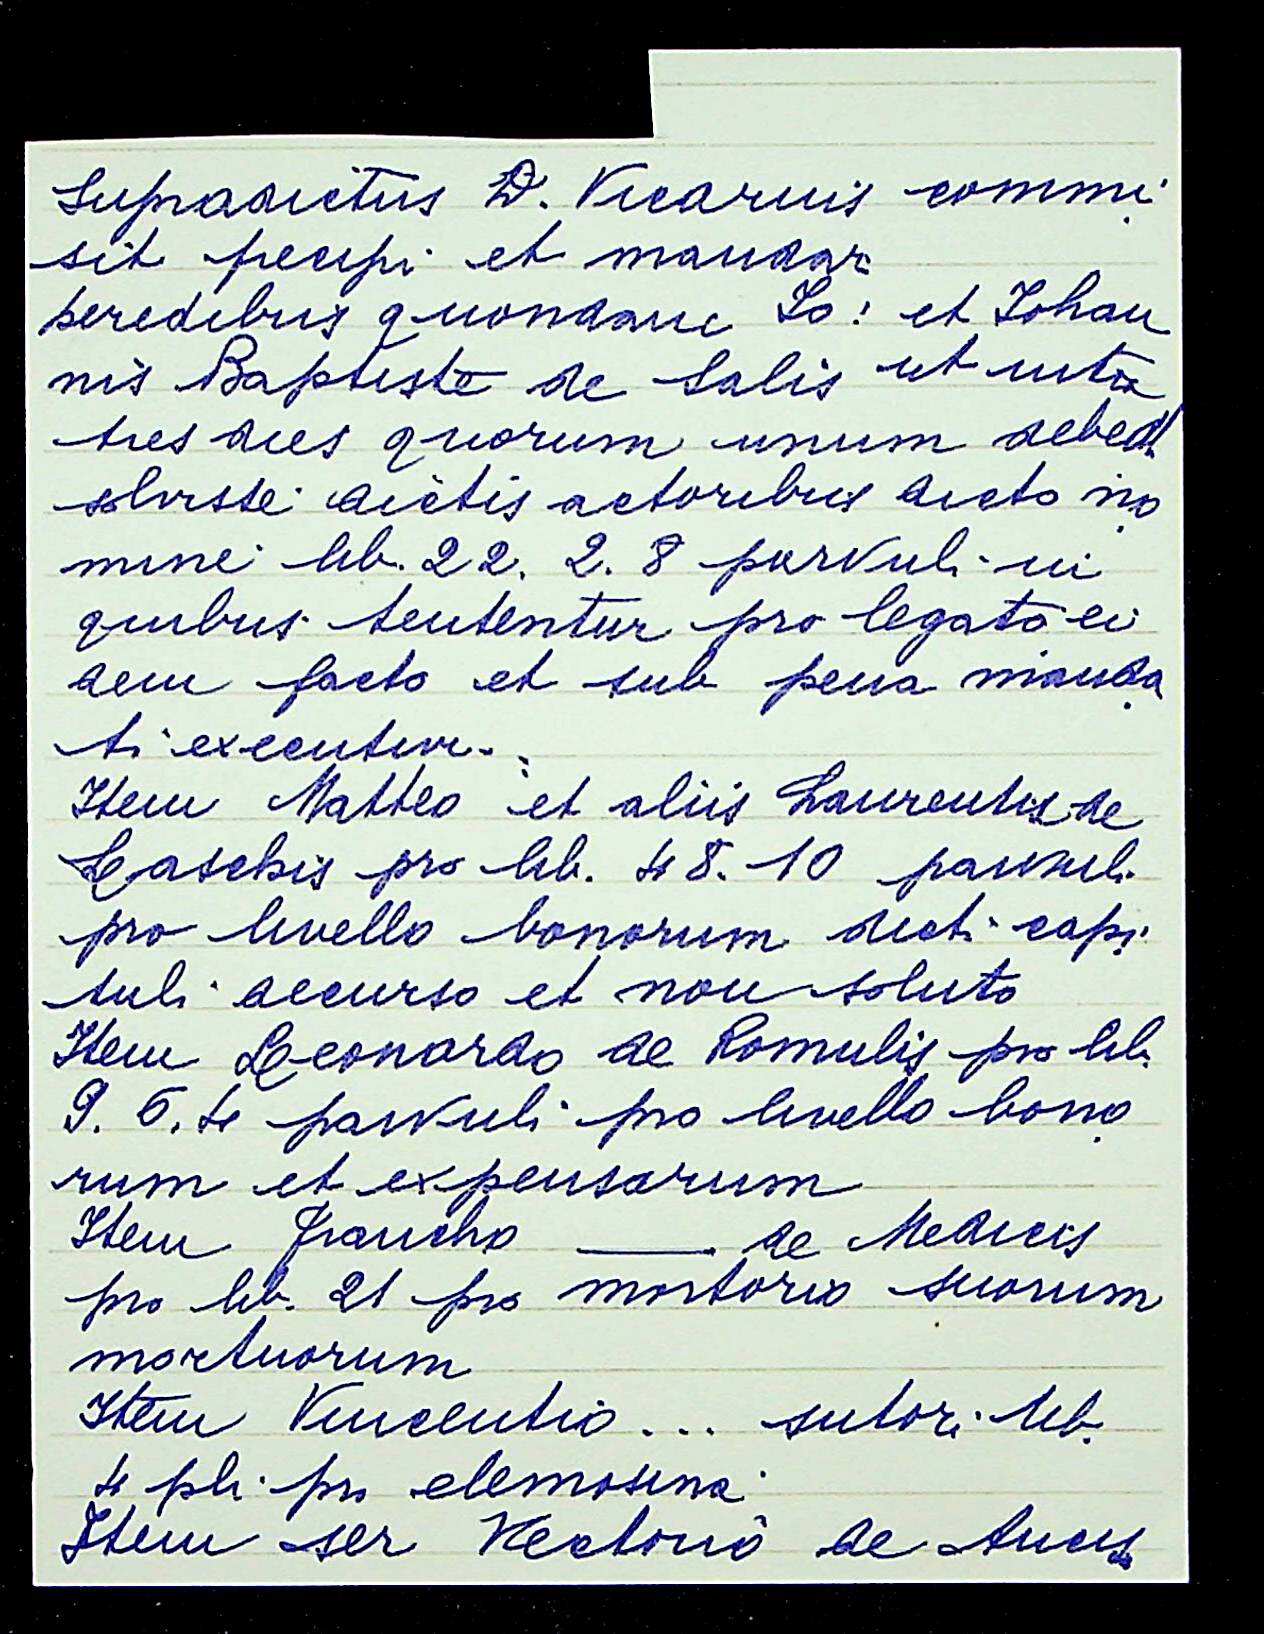 Supradictus D. Vicarius commi
sit precipi et mandari
heredibus quondam Io: et Iohan
nis Baptiste de Salis ut intra
tres dies quorum unum debeat
solvisse dictis actoribus dicto no
mine lib. 22. 2. 8 parvuli in
quibus tenentur pro legato ei
dem facto et sub pena manda
ti executivi.
Item Matteo et aliis Laurentiis de
Caschis pro lib. 48. 10 parvuli
pro livello bonorum dicti capi
tuli decurso et non soluto
Item Leonardo de Romulis pro lib.
9. 6. 4 parvuli pro livello bono
rum et expensarum
Item Francho ___ de Medicis
pro lib. 21 pro mortorio suorum
mortuorum
Item Vincentio ... sutori lib.
4 pli pro elemosina
Item ser Vectorio de